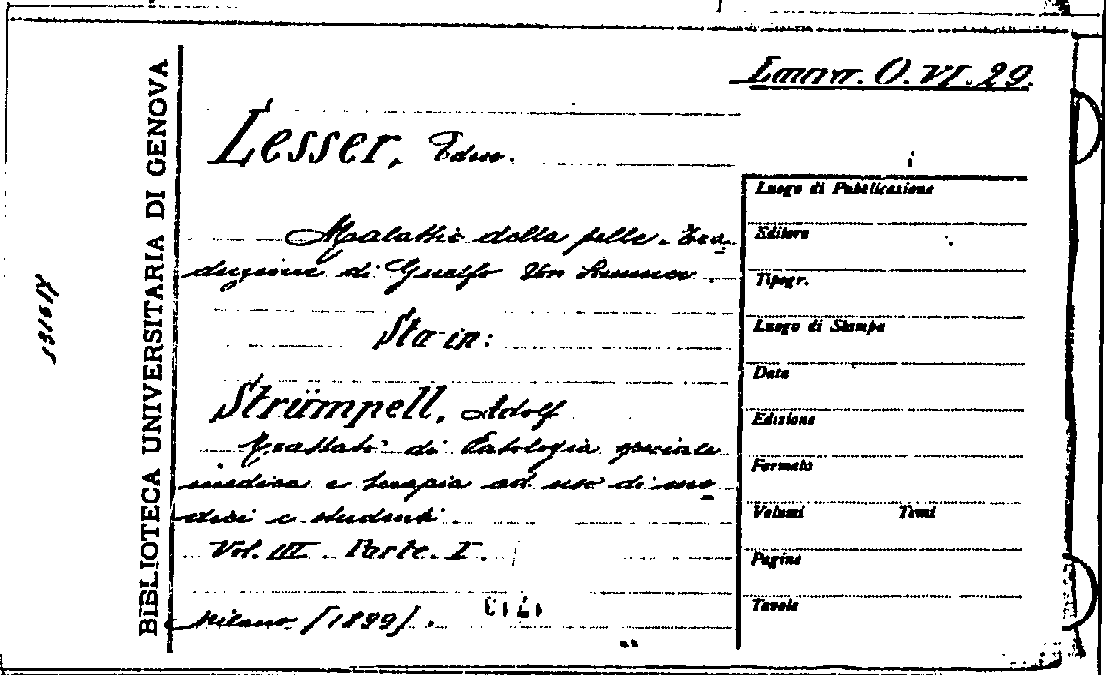 BIBLIOTECA UNIVERSITARIA DI GENOVA
Laura. O. VI. 29.
Lesser, Edm.
Malattie della pelle. Tra-
duzione di Guelfo Von Sommer.
Sta in:
Strümpell, Adolf
Trattato di Patologia speciale
medica e terapia ad uso di me
dici e studenti
Vol. III Parte. I.
Milano [1899].
Luogo di Pubblicazione
Editore
Tipogr.
Luogo di Stampa
Data
Edizione
Formato
Volumi Tomi
Pagine
Tavole